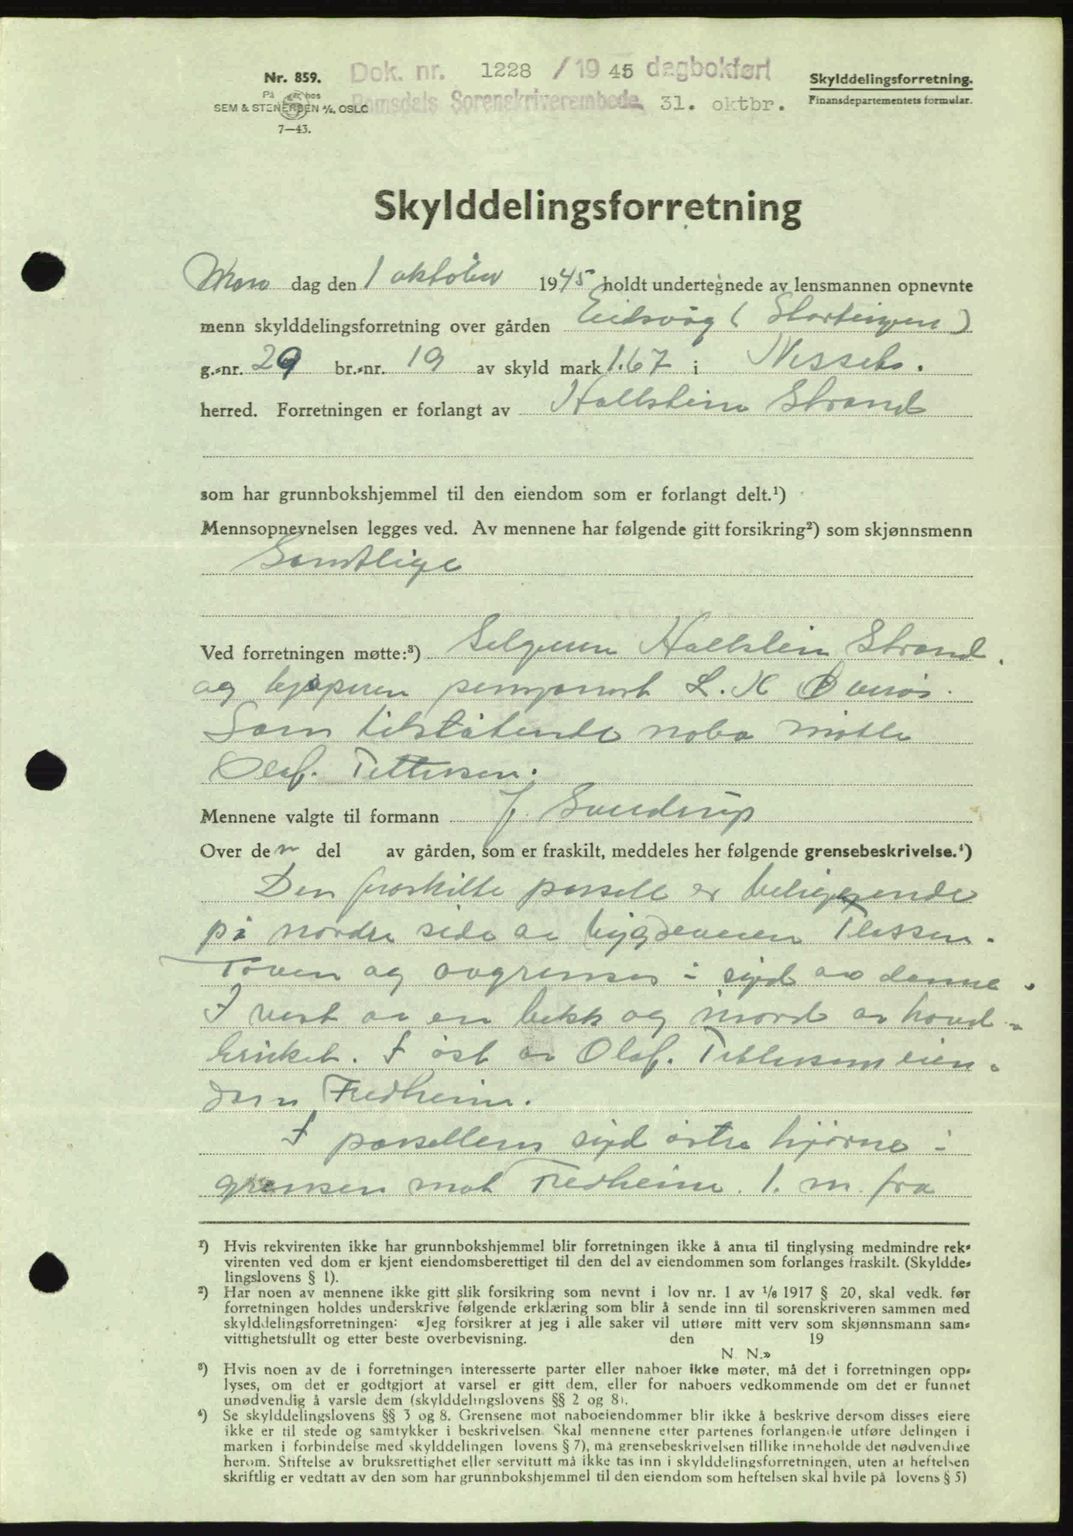 Nr. 859.
Dok. nr. 1228 / 1945 dagbokført
Skylddelingsforretning.
På hos
SEM & STENERSEN A/S, OSLO
Romsdals Sorenskriverembede 31. oktbr.
Finansdepartementets formular.
7—43.
Skylddelingsforretning
Man dag den 1 oktober 1945 holdt undertegnede av lensmannen opnevnte
menn skylddelingsforretning over gården Eidsvåg (Storteigen)
g.-nr. 29 br.-nr. 19 av skyld mark 1.67 i Nesset
herred. Forretningen er forlangt av Hallstein Strand
som har grunnbokshjemmel til den eiendom som er forlangt delt.¹)
Mennsopnevnelsen legges ved. Av mennene har følgende gitt forsikring²) som skjønnsmenn
Samtlige
Ved forretningen møtte:³) Selgeren Hallstein Strand.
og kjøperen L. K
Som tilstøtende nabo møtte
Olaf. Pettersen.
Mennene valgte til formann J. Svendrup
Over den del av gården, som er fraskilt, meddeles her følgende grensebeskrivelse.⁴)
Den fraskilte parsell er beliggende
på nordre side av bygdeveien Tlessem-
Toven og avgrenses i syd av denne.
I vest av en bekk og i nord av hoved-
bruket. I øst av Olaf. Pettersens eien-
dom Fredheim.
I parsellens syd østre hjørne i
grensen mot Fredheim. 1. m. fra
¹) Hvis rekvirenten ikke har grunnbokshjemmel blir forretningen ikke å anta til tinglysing medmindre rek-
virenten ved dom er kjent eiendomsberettiget til den del av eiendommen som forlanges fraskilt. (Skyldde-
lingslovens § 1).
²) Har noen av mennene ikke gitt slik forsikring som nevnt i lov nr. 1 av ¹/₆ 1917 § 20, skal vedk. før
forretningen holdes underskrive følgende erklæring som blir å sende inn til sorenskriveren sammen med
skylddelingsforretningen: «Jeg forsikrer at jeg i alle saker vil utføre mitt verv som skjønnsmann sam-
vittighetsfullt og etter beste overbevisning. den 19
N. N.»
³) Hvis noen av de i forretningen interesserte parter eller naboer ikke møter, må det i forretningen opp-
lyses, om det er godtgjort at varsel er gitt dem, eller for naboers vedkommende om det er funnet
unødvendig å varsle dem (skylddelingslovens §§ 2 og 8).
⁴) Se skylddelingslovens §§ 3 og 8. Grensene mot naboeiendommer blir ikke å beskrive dersom disses eiere
ikke er til stede og samtykker i beskrivelsen. Skal mennene etter partenes forlangende utføre delingen i
marken i forbindelse med skylddelingen lovens § 7), må grensebeskrivelsen tillike inneholde det nødvendige
herom. Stiftelse av bruksrettighet eller servitutt må ikke tas inn i skylddelingsforretningen, uten at heftelsen
skriftlig er vedtatt av den som har grunnbokshjemmel til den eiendom som heftelsen skal hvile på lovens § 5)